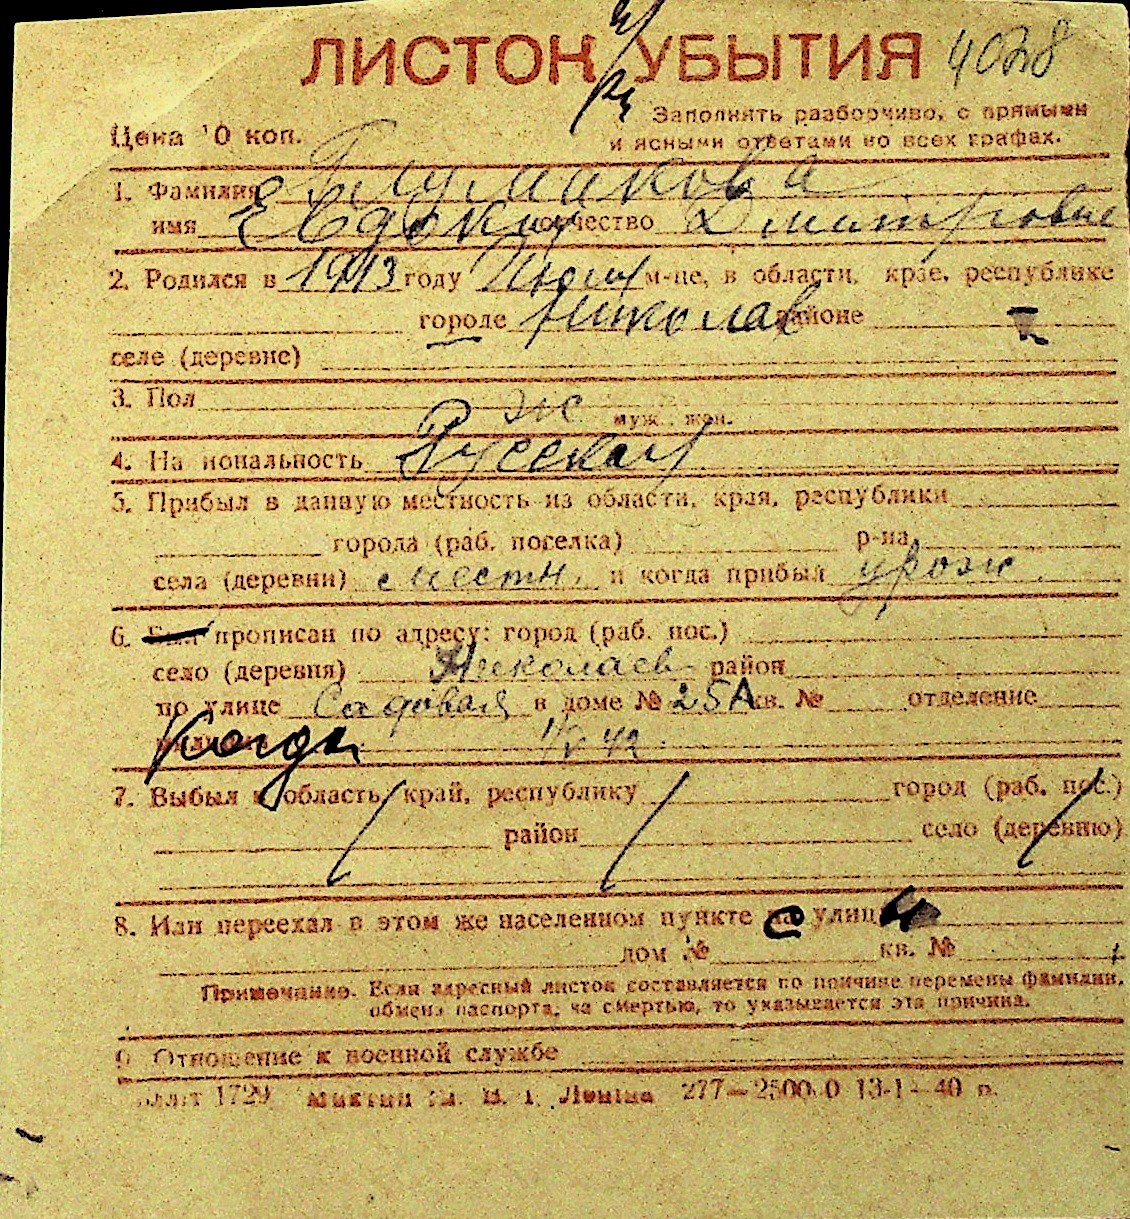 ЛИСТОК УБЫТИЯ 4028
Цена 10 коп. Заполнять разборчиво, с прямыми
и ясными ответами во всех графах.
1. Фамилия Глумакова
имя Евдокия отчество Дмитровна
2. Родился в 1913 году м-це, в области, крае, республике
городе Николаев районе
селе (деревне)
3. Пол ж муж. жен.
4. Национальность Русская
5. Прибыл в данную местность из области, края, республики
города (раб. поселка) р-на
села (деревни) с местн. и когда прибыл урож.
6. Был прописан по адресу: город (раб. пос.)
село (деревня) Николаев район
по улице Садовая в доме № 25А кв. № отделение
милиции Когда 1/V 42
7. Выбыл в область, край, республику город (раб. пос.)
район село (деревню)
8. Или переехал в этом же населенном пункте на улицу с
дом № кв. №
Примечание. Если адресный листок составляется по причине перемены фамилии,
обмена паспорта, за смертью, то указывается эта причина.
9. Отношение к военной службе
1729 Ленина 277—2500.0 13-1-40 г.